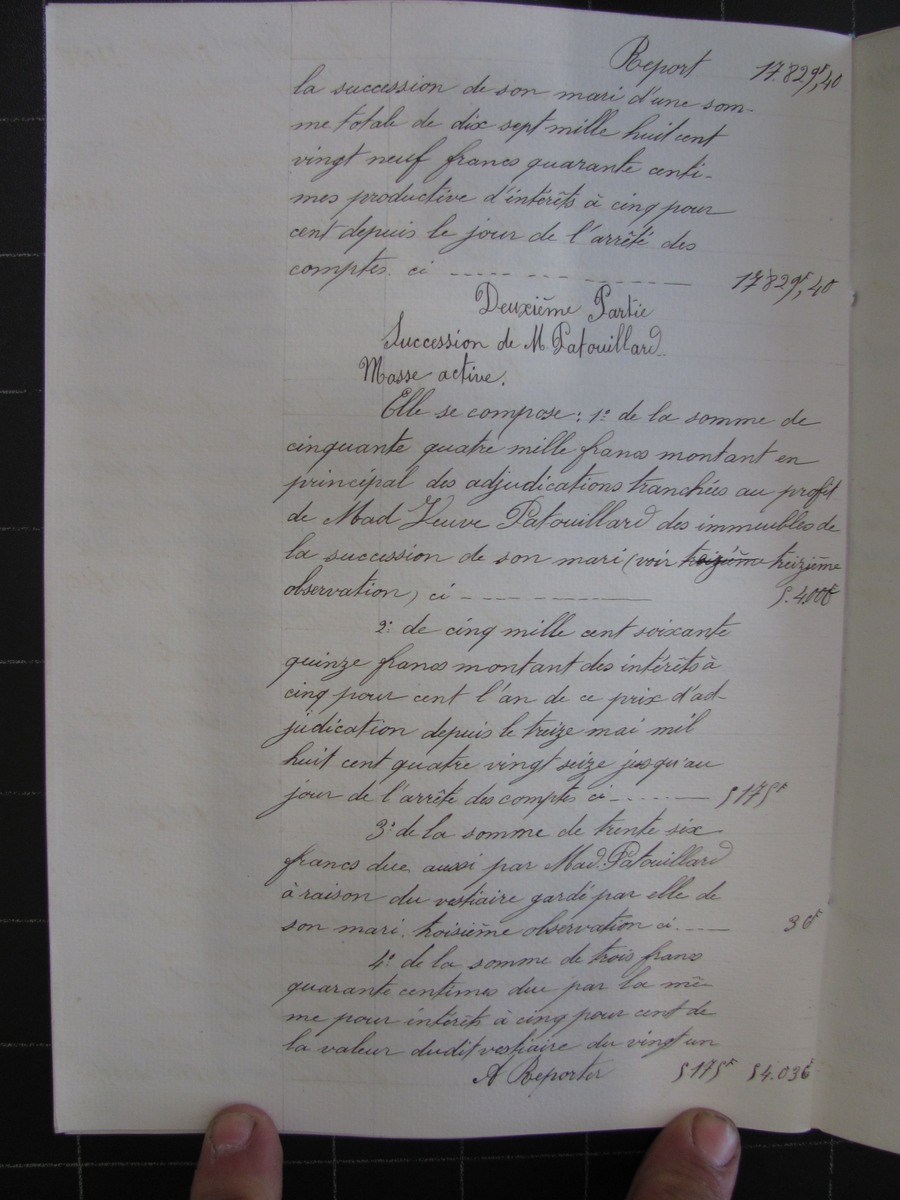 Report 17.829f,40
la succession de son mari d'une som-
me totale de dix sept mille huit cent
vingt neuf francs quarante centi-
mes productive d'intérêts à cinq pour
cent depuis le jour de l'arrêté des
comptes. ci ----- 17829f,40
Deuxième Partie
Succession de M. Patouillard
Masse active.
Elle se compose: 1º de la somme de
cinquante quatre mille francs montant en
principal des adjudications tranchées au profit
de Mad Veuve Patouillard des immeubles de
la succession de son mari (voir treizième
observation) ci -----
2º de cinq mille cent soixante
quinze francs montant des intérêts à
cinq pour cent l'an de ce prix d'ad-
judication depuis le treize mai mil
huit cent quatre vingt seize jusqu'au
jour de l'arrêté des comptes ci ----- 5175f
3º de la somme de trente six
francs due aussi par Mad. Patouillard
à raison du vestiaire gardé par elle de
son mari. troisième observation ci ----
4º de la somme de trois francs
quarante centimes due par la mê-
me pour intérêts à cinq pour cent de
la valeur dudit vestiaire du vingt un
A Reporter 5175f 54.036f